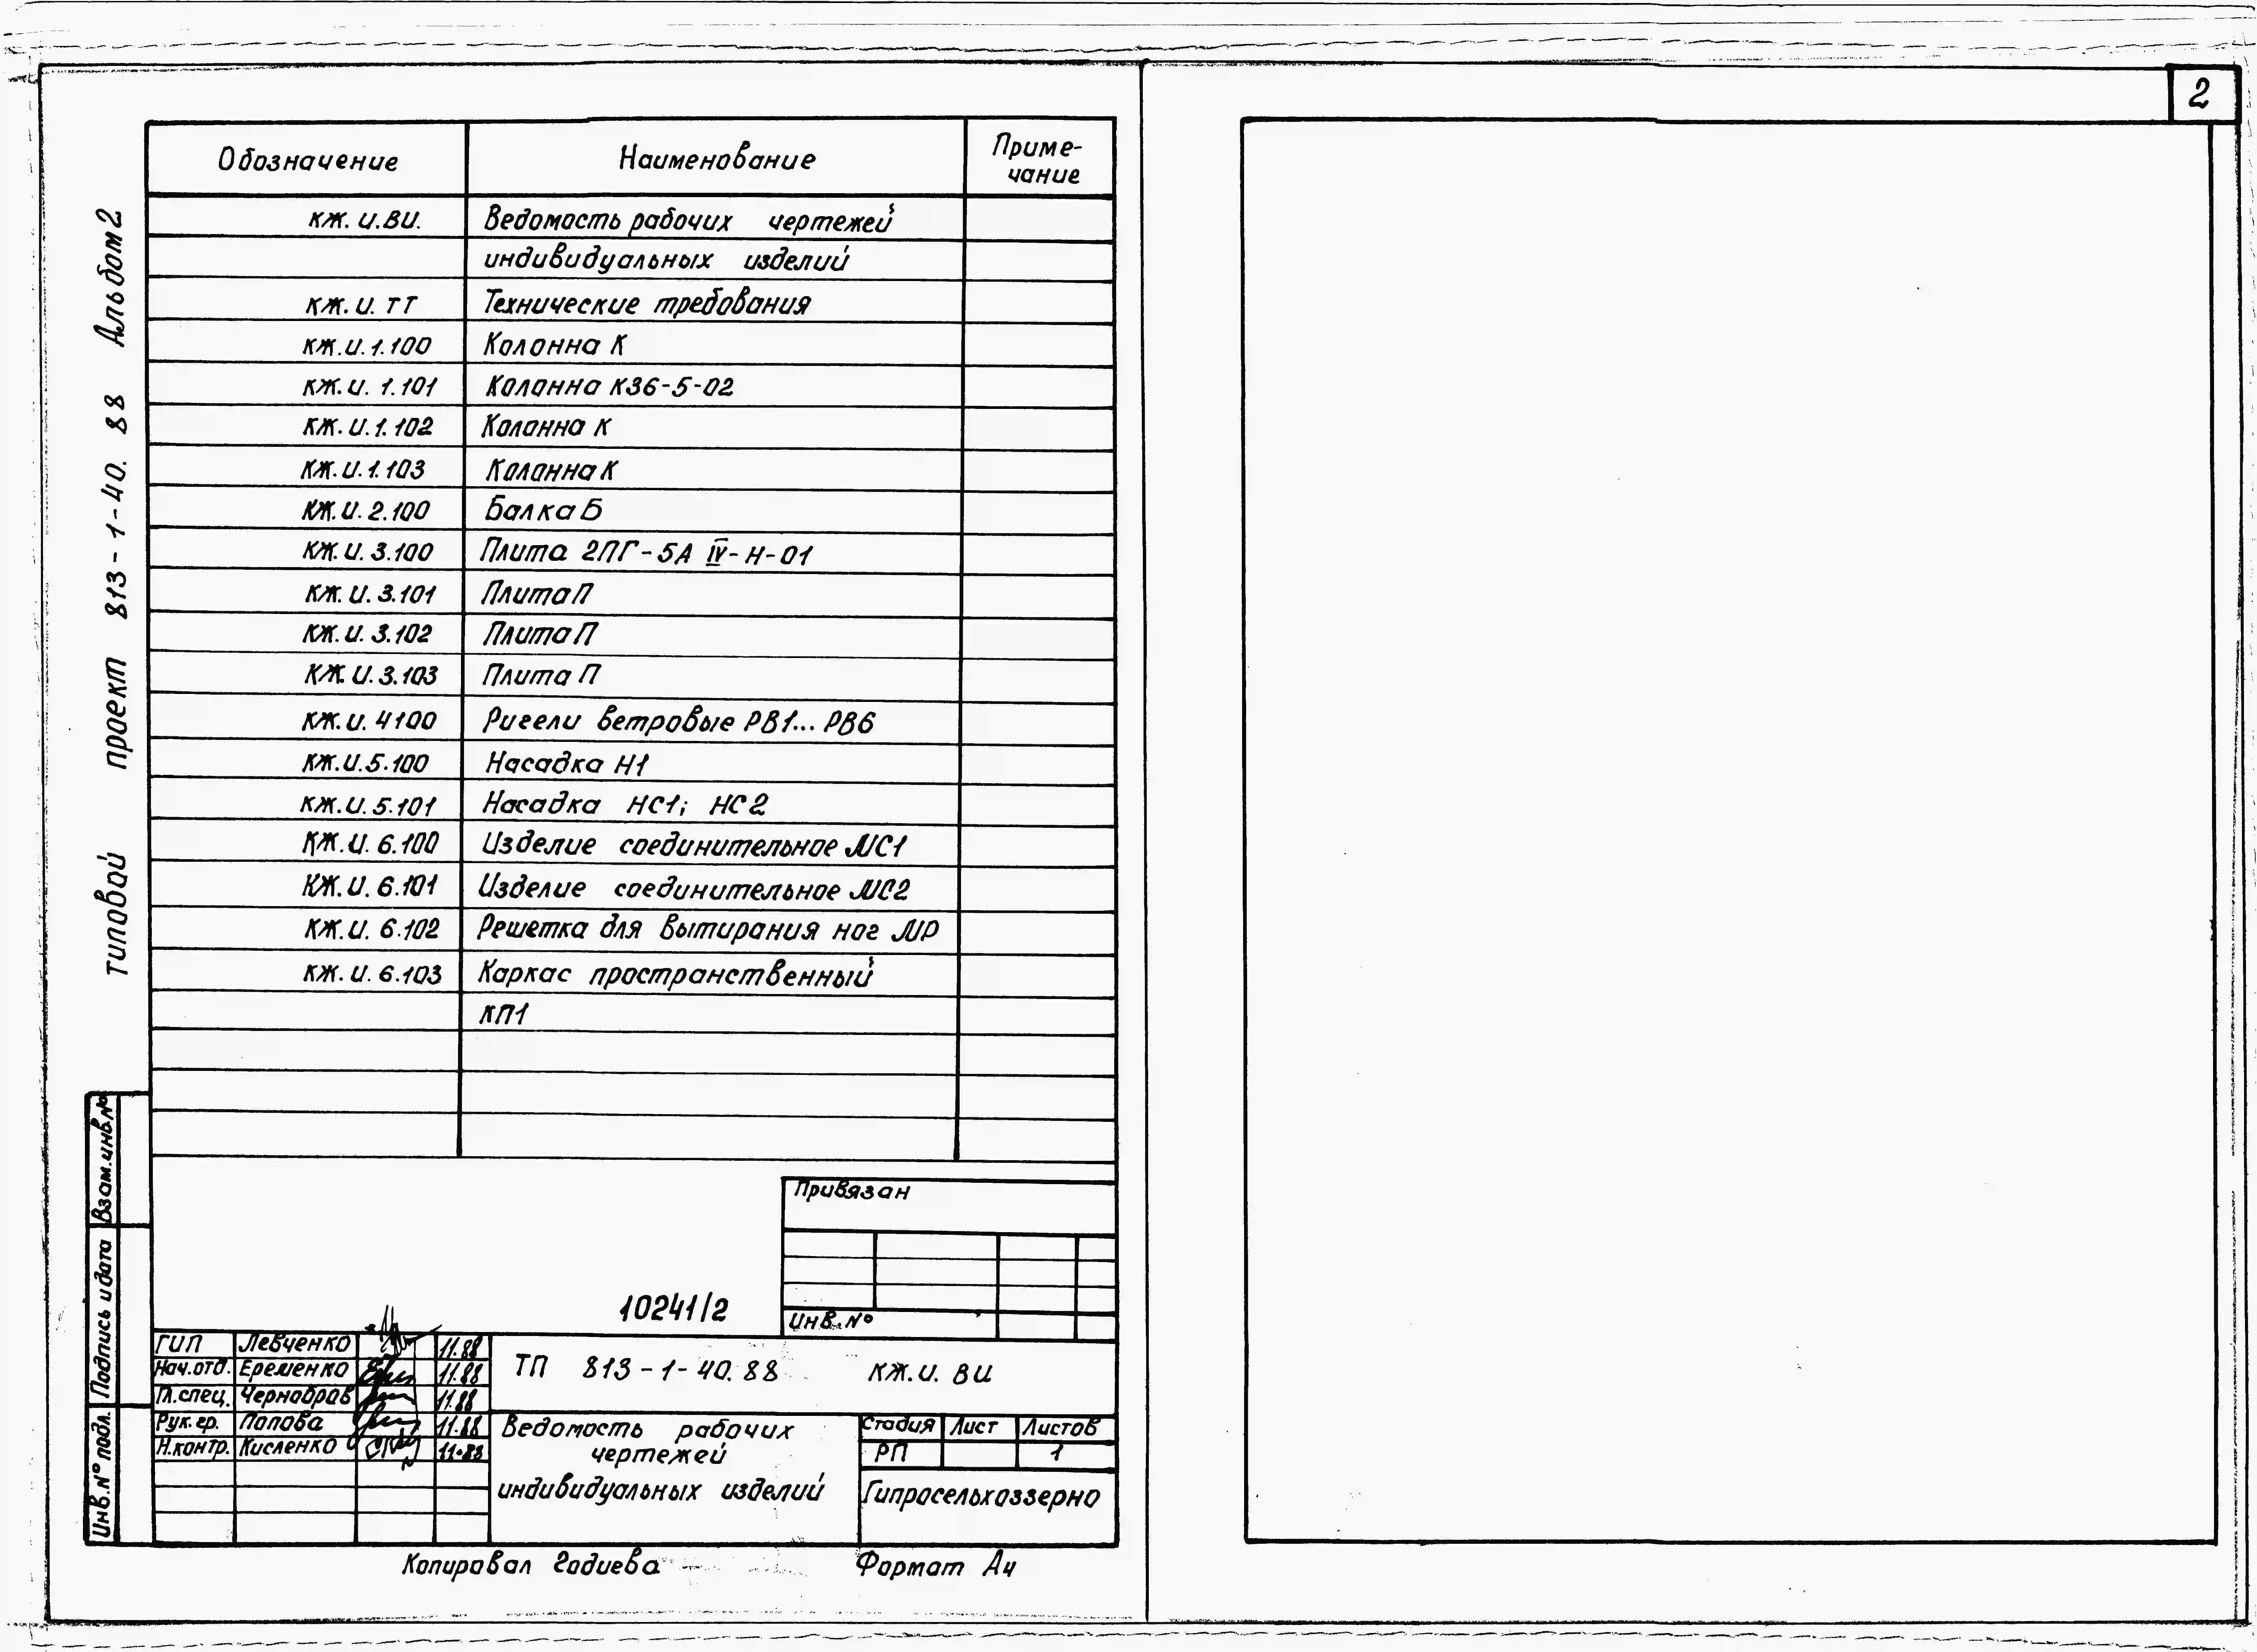 2
Типовой проект 813-1-40.88 Альбом 2
Обозначение Наименование Приме-
чание
КЖ.И.ВИ. Ведомость рабочих чертежей
индивидуальных изделий
КЖ.И.ТТ Технические требования
КЖ.И.1.100 Колонна К
КЖ.И.1.101 Колонна К36-5-02
КЖ.И.1.102 Колонна К
КЖ.И.1.103 Колонна К
КЖ.И.2.100 Балка Б
КЖ.И.3.100 Плита 2ПГ-5А IV-Н-01
КЖ.И.3.101 Плита П
КЖ.И.3.102 Плита П
КЖ.И.3.103 Плита П
КЖ.И.4100 Ригели ветровые РВ1... РВ6
КЖ.И.5.100 Насадка Н1
КЖ.И.5.101 Насадка НС1; НС2
КЖ.И.6.100 Изделие соединительное МС1
КЖ.И.6.101 Изделие соединительное МС2
КЖ.И.6.102 Решетка для вытирания ног МР
КЖ.И.6.103 Каркас пространственный
КП1
Взам.инв.№
Подпись и дата
Инв.№ подл.
Привязан
Инв.№
10241/2
ГИП Левченко 11.88
Нач.отд. Еременко 11.88
Гл.спец. Чернобров 11.88
Рук.гр. Попова 11.88
Н.контр. Кисленко 11.88
ТП 813-1-40.88 КЖ.И.ВИ
Ведомость рабочих
чертежей
индивидуальных изделий
Стадия Лист Листов
РП 1
Гипросельхоззерно
Копировал Годиева Формат А4